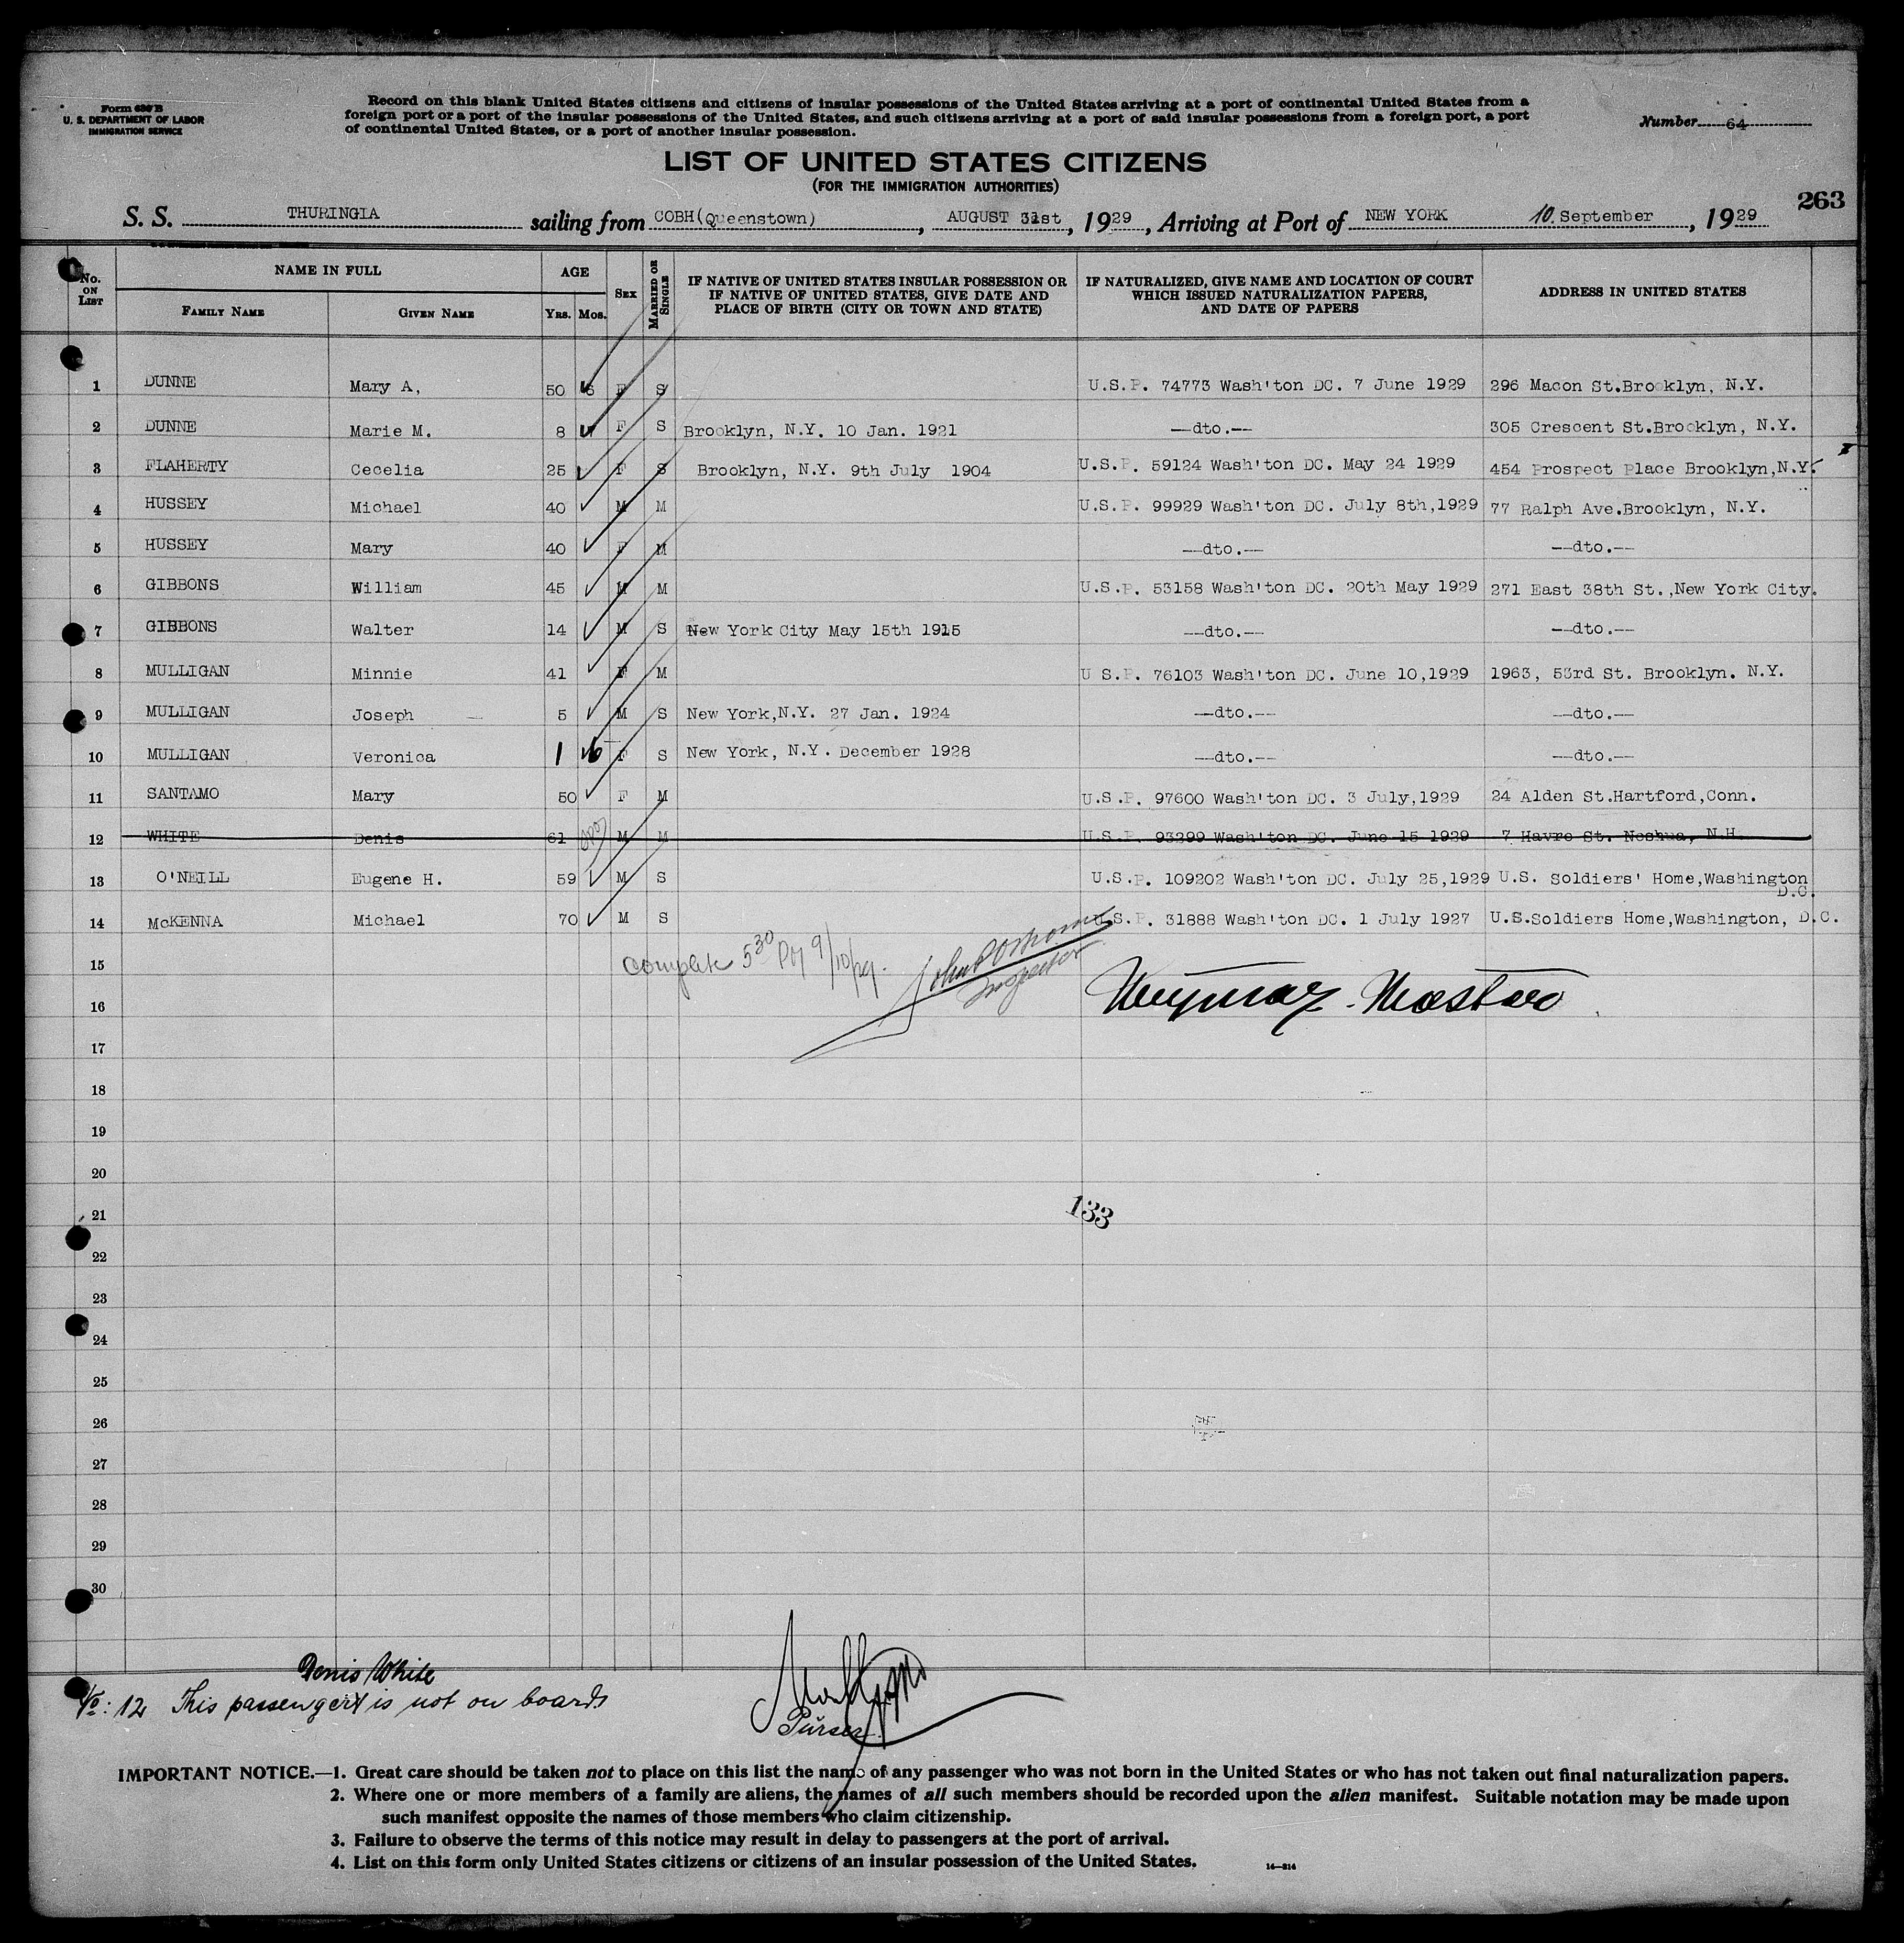 Form 630 B
U. S. DEPARTMENT OF LABOR
IMMIGRATION SERVICE
Record on this blank United States citizens and citizens of insular possessions of the United States arriving at a port of continental United States from a
foreign port or a port of the insular possessions of the United States, and such citizens arriving at a port of said insular possessions from a foreign port, a port
of continental United States, or a port of another insular possession.
Number 64
LIST OF UNITED STATES CITIZENS
(FOR THE IMMIGRATION AUTHORITIES)
263
S. S. THURINGIA sailing from COBH(Queenstown), AUGUST 31st, 1929, Arriving at Port of NEW YORK 10. September, 1929
No. ON LIST
NAME IN FULL
FAMILY NAME
GIVEN NAME
AGE
YRS. MOS.
SEX
MARRIED OR SINGLE
IF NATIVE OF UNITED STATES INSULAR POSSESSION OR
IF NATIVE OF UNITED STATES, GIVE DATE AND
PLACE OF BIRTH (CITY OR TOWN AND STATE)
IF NATURALIZED, GIVE NAME AND LOCATION OF COURT
WHICH ISSUED NATURALIZATION PAPERS,
AND DATE OF PAPERS
ADDRESS IN UNITED STATES
1 DUNNE Mary A, 50 6 F S U.S.P. 74773 Wash'ton DC. 7 June 1929 296 Macon St.Brooklyn, N.Y.
2 DUNNE Marie M. 8 F S Brooklyn, N.Y. 10 Jan. 1921 --dto.-- 305 Crescent St.Brooklyn, N.Y.
3 FLAHERTY Cecelia 25 F S Brooklyn, N.Y. 9th July 1904 U.S.P. 59124 Wash'ton DC. May 24 1929 454 Prospect Place Brooklyn,N.Y.
4 HUSSEY Michael 40 M M U.S.P. 99929 Wash'ton DC. July 8th,1929 77 Ralph Ave.Brooklyn, N.Y.
5 HUSSEY Mary 40 F M --dto.-- --dto.--
6 GIBBONS William 45 M M U.S.P. 53158 Wash'ton DC. 20th May 1929 271 East 38th St.,New York City.
7 GIBBONS Walter 14 M S New York City May 15th 1915 --dto.-- --dto.--
8 MULLIGAN Minnie 41 F M U S.P. 76103 Wash'ton DC. June 10,1929 1963, 53rd St. Brooklyn. N.Y.
9 MULLIGAN Joseph 5 M S New York,N.Y. 27 Jan. 1924 --dto.-- --dto.--
10 MULLIGAN Veronica 1 6 F S New York, N.Y. December 1928 --dto.-- --dto.--
11 SANTAMO Mary 50 F M U.S.P. 97600 Wash'ton DC. 3 July,1929 24 Alden St.Hartford,Conn.
12 WHITE Denis 61 M M U.S.P. 93299 Wash'ton DC. June 15 1929 7 Havre St. Noshua, N.H.
13 O'NEILL Eugene H. 59 M S U.S.P. 109202 Wash'ton DC. July 25,1929 U.S. Soldiers' Home,Washington
D.C.
14 McKENNA Michael 70 M S U.S.P. 31888 Wash'ton DC. 1 July 1927 U.S.Soldiers Home,Washington, D.C.
Complete 5 30 PM 9/10/29.
Inspector
15
16
17
18
19
20
21
133
22
23
24
25
26
27
28
29
30
Denis White
No: 12 This passenger is not on boards
Purser
IMPORTANT NOTICE.—1. Great care should be taken not to place on this list the name of any passenger who was not born in the United States or who has not taken out final naturalization papers.
2. Where one or more members of a family are aliens, the names of all such members should be recorded upon the alien manifest. Suitable notation may be made upon
such manifest opposite the names of those members who claim citizenship.
3. Failure to observe the terms of this notice may result in delay to passengers at the port of arrival.
4. List on this form only United States citizens or citizens of an insular possession of the United States.
14—214